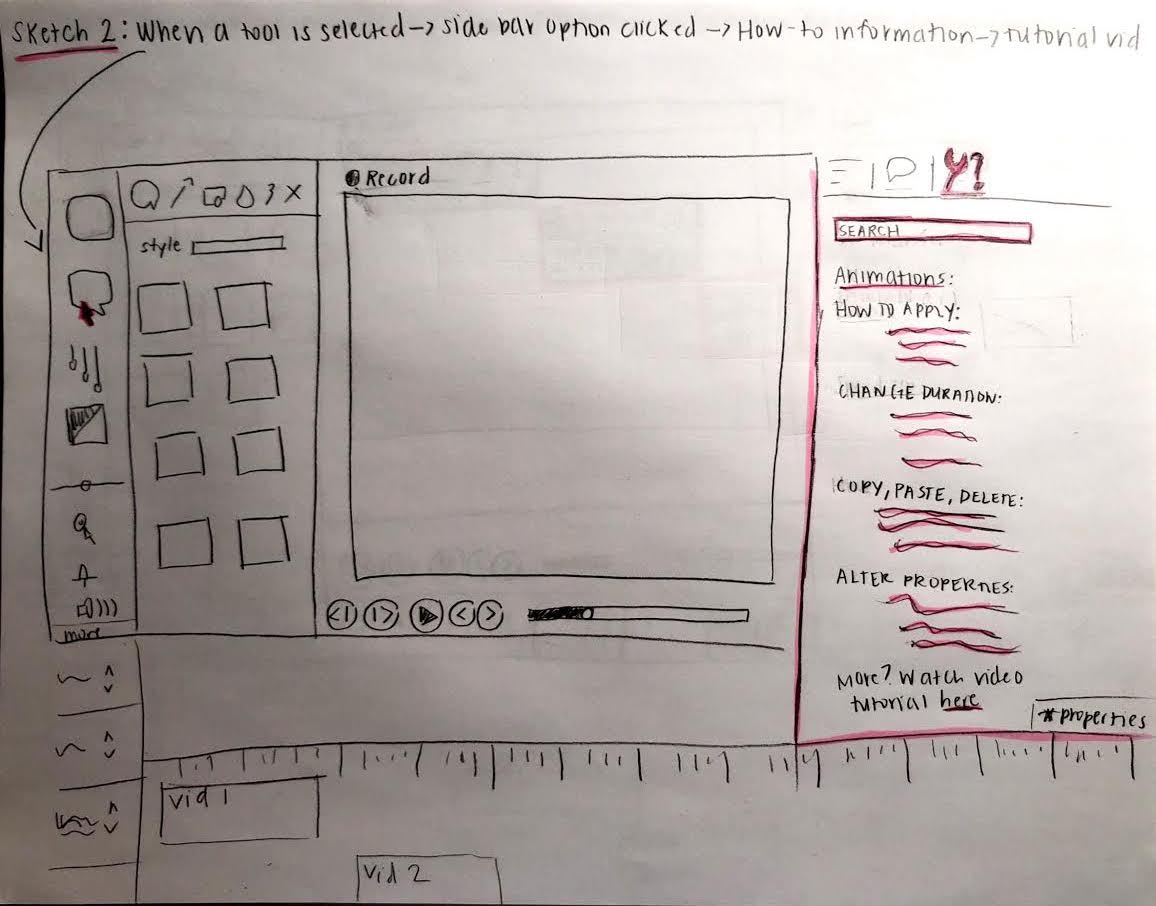 Sketch 2: When a tool is selected → side bar option clicked → How-to information → tutorial vid
Record
Y?
style
SEARCH
Animations:
HOW TO APPLY:
CHANGE DURATION:
COPY, PASTE, DELETE:
ALTER PROPERTIES:
more
More? Watch video
tutorial here
*properties
vid 1
vid 2